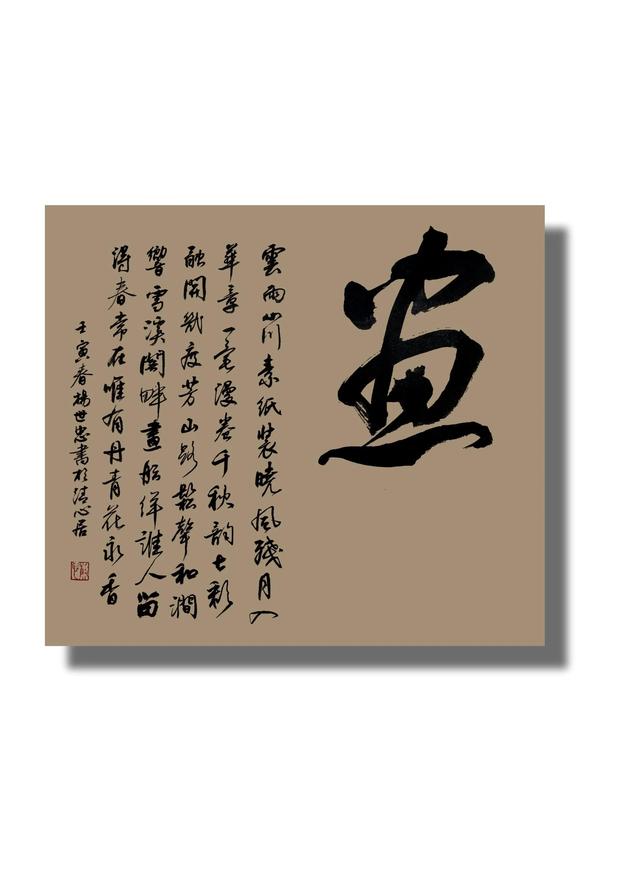 畫
雲雨山川素紙裝曉風殘月入
華章一毫漫卷千秋韵七彩
融開感夜芳山路鬆聲和澗
響雪溪閣畔畫船徉誰人留
得春常在唯有丹青花永香
壬寅春楊世忠書於清心居